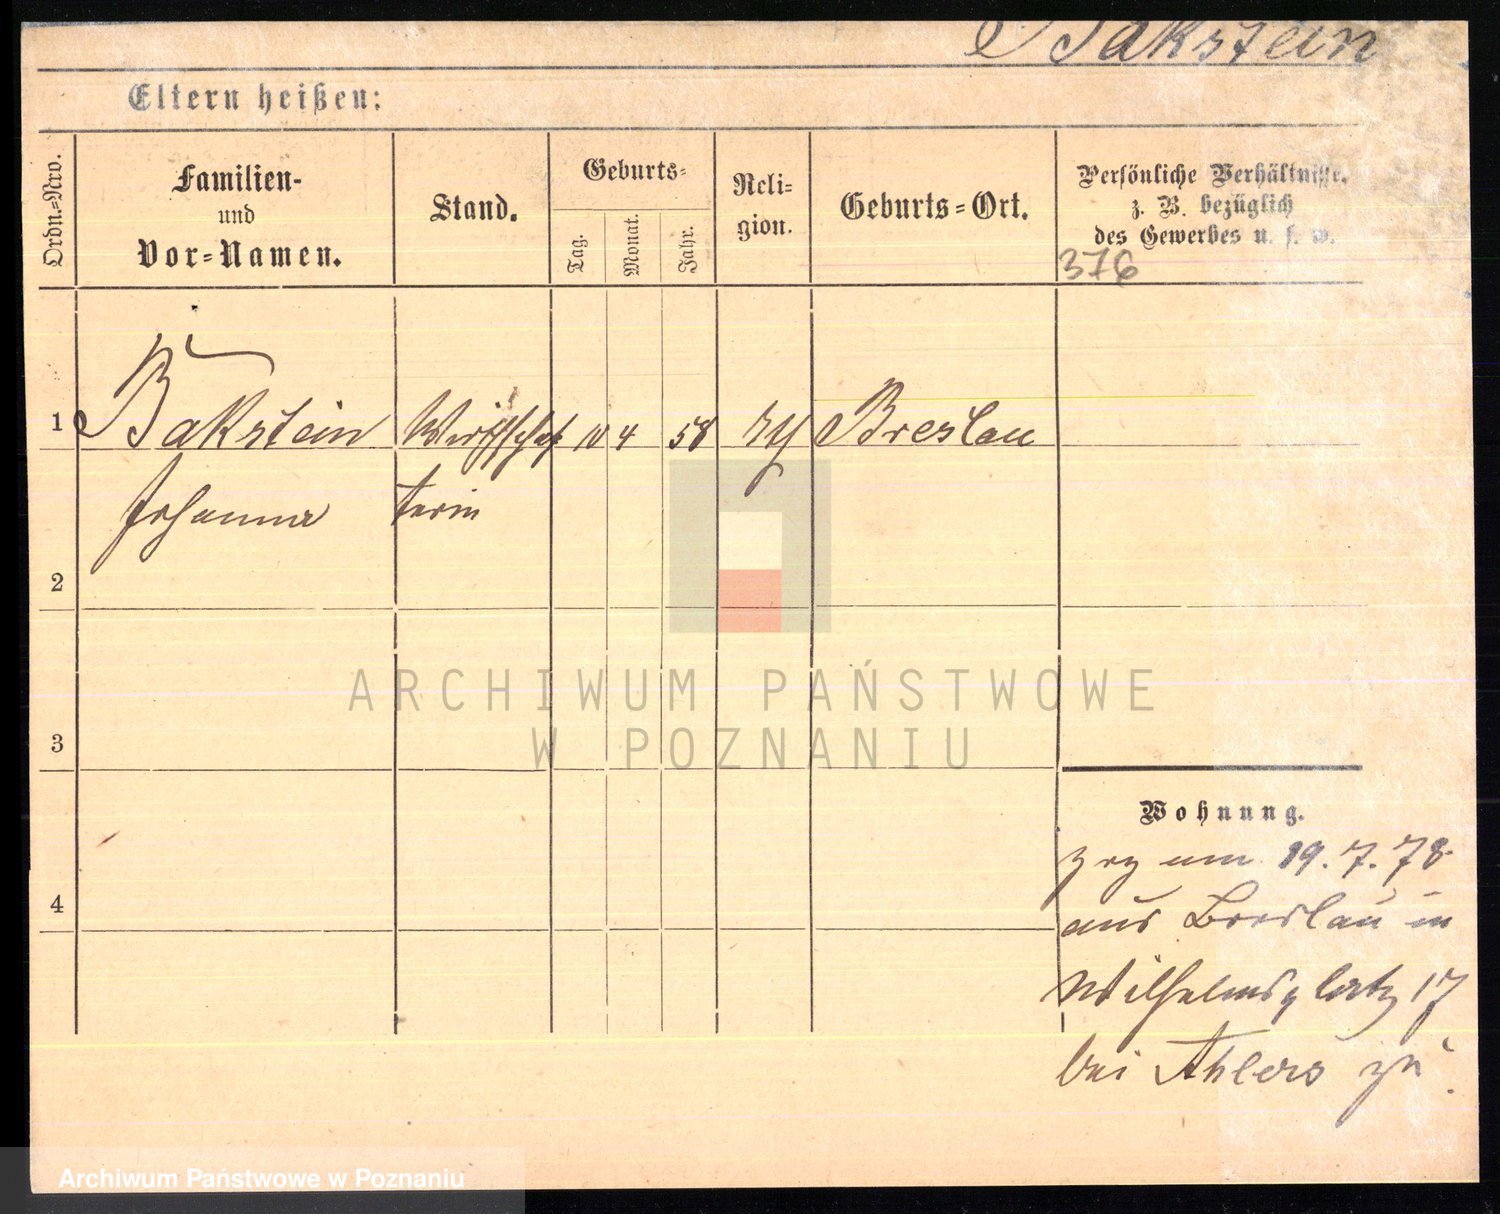 Bakstein
Eltern heißen:
Ordn.-Nro.
Familien-
und
Vor-Namen.
Stand.
Geburts-
Tag.
Monat.
Jahr.
Reli-
gion.
Geburts-Ort.
Persönliche Verhältnisse,
z. B. bezüglich
des Gewerbes u. s. w.
376
1 Bakstein Wirthschaf 10 4 58 Breslau
Johanna terin
2
3
4
Wohnung.
zrz am 19.7.78
aus Breslau in
Wilhelmsplatz 17
bei Ahlers zu
ARCHIWUM PAŃSTWOWE
W POZNANIU
Archiwum Państwowe w Poznaniu